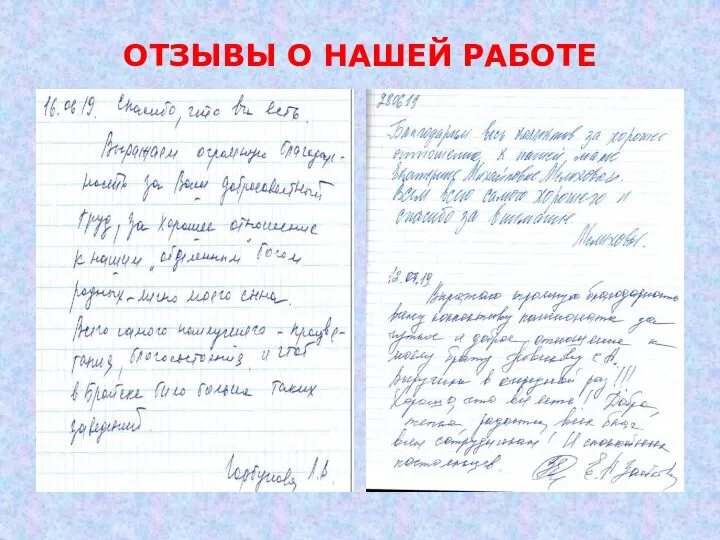 ОТЗЫВЫ О НАШЕЙ РАБОТЕ
16.08.19. Спасибо, что вы есть.
Выражаем огромную благодар-
ность за Ваш добросовестный
труд, за хорошее отношение
к нашим "отделённым" Богом
родных - лично моего сына.
Всего самого наилучшего - процве-
тания, благосостояния и чтоб
в Братске было больше таких
заведений.
Горбунова Л.В.
280619
Благодарим весь коллектив за хорошее
отношение к нашей маме
Екатерине Михайловне Мелиховой.
Всем всего самого хорошего и
спасибо за внимание
Мелиховы.
12.07.19
Выражаю огромную благодарность
всему коллективу пансионата за
чуткое и доброе отношение к
моему брату С.А.
Выручили в очередной раз!!!
Хорошо, что вы есть!! Добра,
тепла, радости, всех благ
всем сотрудникам! И спокойных
постояльцев.
Е.А.